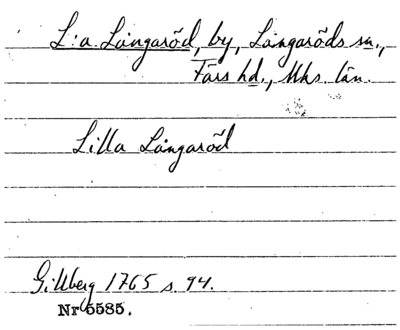 L:a Långaröd, by, Långaröds sn.,
Färs hd., Mhs. län.
Lilla Långaröd
Gillberg 1765 s. 94.
Nr 5585.